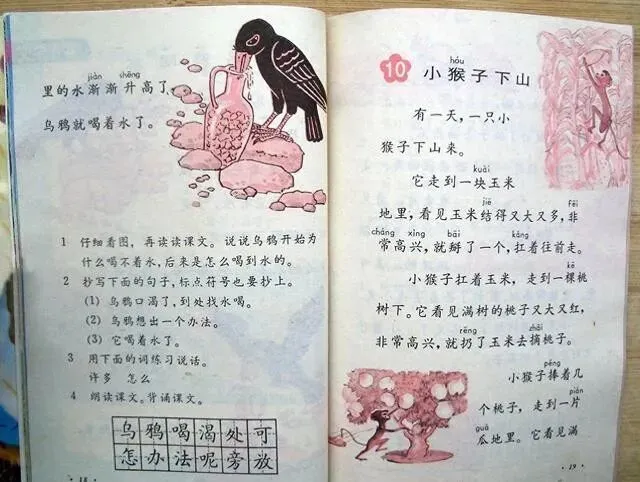 jiàn shēng
里的水渐渐升高了,
乌鸦就喝着水了。
1 仔细看图，再读读课文。说说乌鸦开始为
什么喝不着水,后来是怎么喝到水的。
2 抄写下面的句子,标点符号也要抄上。
(1) 乌鸦口渴了,到处找水喝。
(2) 乌鸦想出一个办法。
(3) 它喝着水了。
3 用下面的词练习说话。
许多 怎么
4 朗读课文。背诵课文。
乌鸦喝渴处可
怎办法呢旁放
·18·
hóu
10 小猴子下山
有一天,一只小
猴子下山来。
kuài
它走到一块玉米
jiē fēi
地里,看见玉米结得又大又多,非
cháng xìng bāi káng
常高兴,就掰了一个,扛着往前走。
kē
小猴子扛着玉米，走到一棵桃
树下。它看见满树的桃子又大又红,
rēng zhāi
非常高兴,就扔了玉米去摘桃子。
pěng
小猴子捧着几
个桃子，走到一片
guā
瓜地里。它看见满
·19·